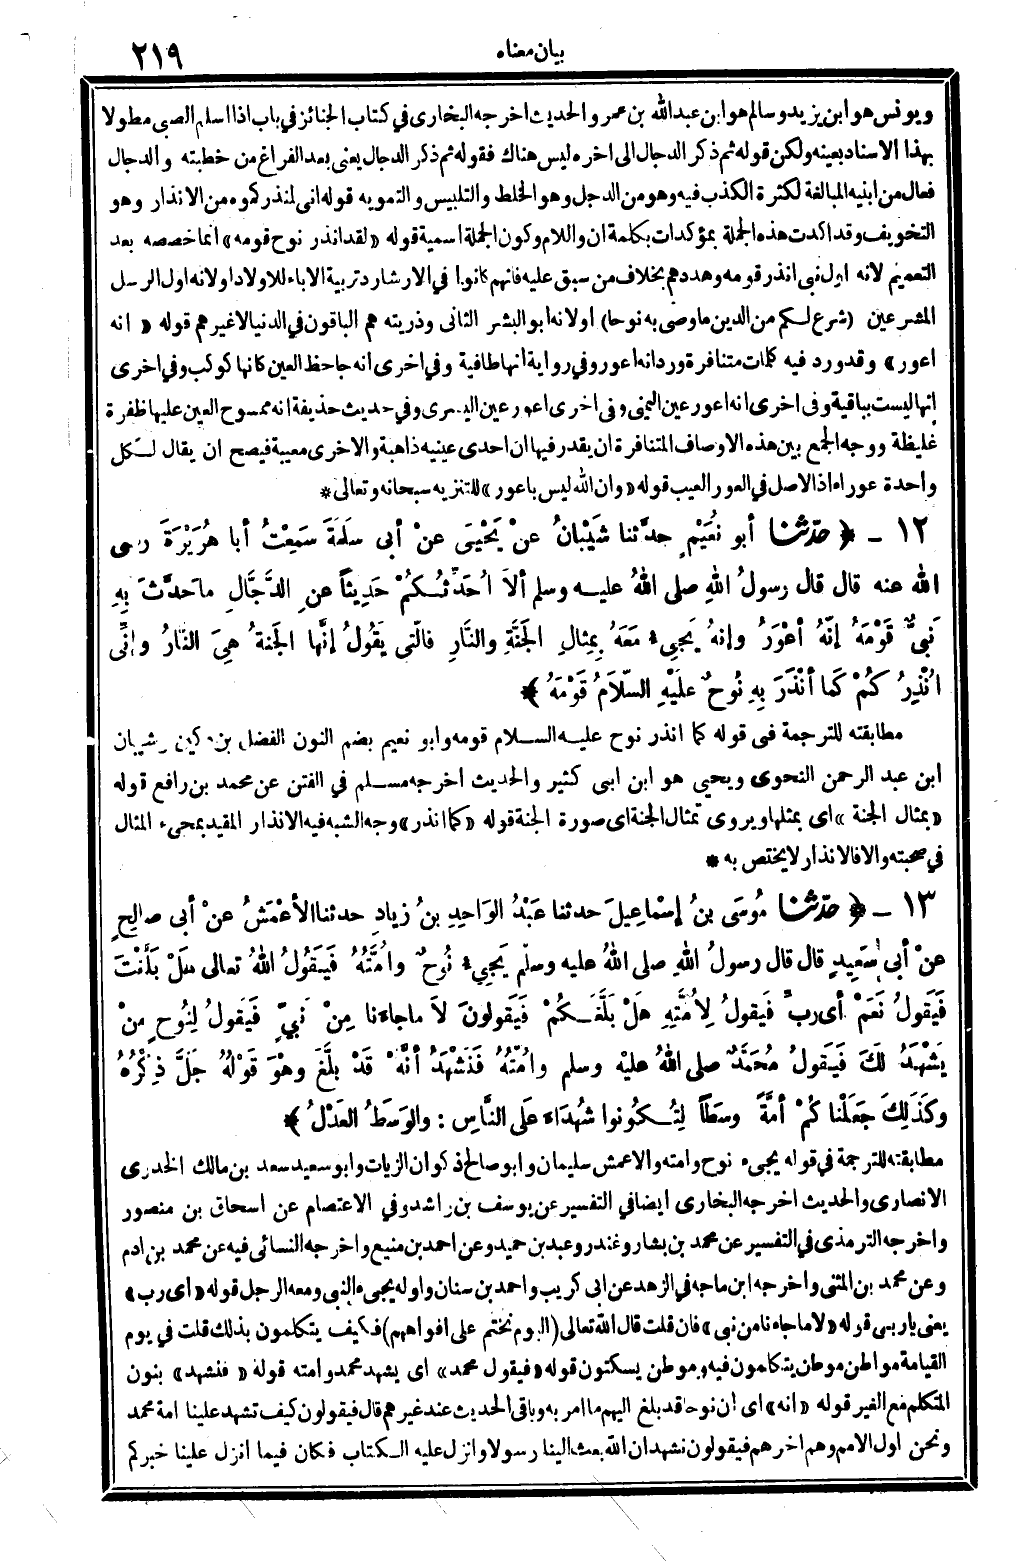 بيان معناه
٢١٩
ويونس هو ابن يزيد وسالم هو ابن عبدالله بن عمر والحديث اخرجه البخارى في كتاب الجنائز في باب اذا اسلم الصبى مطولا
بهذا الاسناد بعينه ولكن قوله ثم ذكر الدجال الى اخره ليس هناك فقوله ثم ذكر الدجال يعنى بعد الفراغ من خطبته والدجال
فعال من ابنيه المبالغة لكثرة الكذب فيه وهو من الدجل وهو الخلط والتلبيس والتمويه قوله انى لمنذركموه من الانذار وهو
التخويف وقد اكدت هذه الجملة بمؤكدات بكلمة ان واللام وكون الجملة اسمية قوله «لقد انذر نوح قومه» انما خصصه بعد
التعميم لانه اول نبى انذر قومه وهددهم بخلاف من سبق عليه فانهم كانوا في الارشاد تربية الاباء للاولاد او لانه اول الرسل
المشرعين (شرع لكم من الدين ما وصى به نوحا) او لانه ابو البشر الثانى وذريته هم الباقون في الدنيا لا غيرهم قوله «انه
اعور» وقد ورد فيه كلمات متنافرة ورد انه اعور وفي رواية انها طافية وفي اخرى انه جاحظ العين كانها كوكب وفي اخرى
انها ليست بباقية وفى اخرى انه اعور عين اليمنى وفى اخرى اعور عين اليسرى وفي حديث حذيفة انه ممسوح العين عليها ظفرة
غليظة ووجه الجمع بين هذه الاوصاف المتنافرة ان يقدر فيها ان احدى عينيه ذاهبة والاخرى معيبة فيصح ان يقال لكل
واحدة عوراء اذ الاصل في العور العيب قوله «وان الله ليس باعور» للتنزيه سبحانه وتعالى *
١٢ - ﴿ حدّثنا أبو نُعَيْمٍ حدّثنا شَيْبانُ عنْ يَحْيَى عنْ أبى سلَمَةَ سَمِعْتُ أبا هُرَيْرَةَ رضى
الله عنه قال قال رسولُ اللهِ صلى اللهُ عليه وسلم ألاَ اُحَدِّثُكُمْ حَدِيثاً عنِ الدَّجَّالِ ماحدَّثَ بِهِ
نَبىٌّ قَوْمَهُ إنَّهُ أعْوَرُ وإنهُ يَجِىءُ مَعَهُ بِمِثالِ الجَنَّةِ والنَّارِ فالَّتى يَقُولُ إنَّها الجَنةُ هِىَ النَّارُ وإنِّى
اُنْذِرُ كُمْ كَما أنْذَرَ بِهِ نُوحٌ علَيْهِ السّلاَمُ قَوْمَهُ ﴾
مطابقته للترجمة فى قوله كما انذر نوح عليه السلام قومه وابو نعيم بضم النون الفضل بن دكين وشيبان
ابن عبد الرحمن النحوى ويحيى هو ابن ابى كثير والحديث اخرجه مسلم في الفتن عن محمد بن رافع قوله
«بمثال الجنة» اى بمثلها ويروى تمثال الجنة اى صورة الجنة قوله «كما انذر» وجه الشبه فيه الانذار المقيد بمجىء المثال
في صحبته والا فالانذار لا يختص به *
١٣ - ﴿ حدّثنا مُوسَى بنُ إسْماعِيلَ حدثنا عَبْدُ الوَاحِدِ بنُ زِيادٍ حدثنا الأعْمَشُ عنْ أبى صالِحٍ
عنْ أبى سَعِيدٍ قال قال رسولُ اللهِ صلى اللهُ عليه وسلّم يَجِىءُ نُوحٌ واُمَّتُهُ فَيَقُولُ اللهُ تعالى هَلْ بَلَّغْتَ
فَيَقُولُ نَعَمْ أى ربِّ فَيقولُ لِاُمَّتِهِ هَلْ بَلَّغَكُمْ فَيَقولونَ لاَ ماجاءَنا مِنْ نَبيٍّ فَيَقولُ لِنُوحٍ مِنْ
يَشْهَدُ لكَ فَيَقولُ مُحَمَّدٌ صلى اللهُ عليْه وسلم واُمّتُهُ فَنَشْهَدُ أنَّهُ قَدْ بلَّغَ وهْوَ قَوْلُهُ جَلَّ ذِكْرُهُ
وكَذلِكَ جَعَلْنا كُمْ اُمَّةً وسَطاً لِتَكُونُوا شُهَدَاءَ عَلَى النَّاسِ : والوَسَطُ العَدْلُ ﴾
مطابقته للترجمة في قوله يجىء نوح وامته والاعمش سليمان وابو صالح ذكوان الزيات وابو سعيد سعد بن مالك الخدرى
الانصارى والحديث اخرجه البخارى ايضا في التفسير عن يوسف بن راشد وفي الاعتصام عن اسحاق بن منصور
واخرجه الترمذى في التفسير عن محمد بن بشار وغندر وعبد بن حميد وعن احمد بن منيع واخرجه النسائى فيه عن محمد بن ادم
وعن محمد بن المثنى واخرجه ابن ماجه في الزهد عن ابى كريب واحمد بن سنان واوله يجىء النبى ومعه الرجل قوله «اى رب»
يعنى يا ربى قوله «لا ما جاءنا من نبى» فان قلت قال الله تعالى (اليوم نختم على افواههم) فكيف يتكلمون بذلك قلت في يوم
القيامة مواطن موطن يتكلمون فيه وموطن يسكتون قوله «فيقول محمد» اى يشهد محمد وامته قوله «فنشهد» بنون
المتكلم مع الغير قوله «انه» اى ان نوحا قد بلغ اليهم ما امر به وباقى الحديث عند غيرهم قال فيقولون كيف تشهد علينا امة محمد
ونحن اول الامم وهم اخرهم فيقولون نشهد ان الله بعث الينا رسولا وانزل عليه الكتاب فكان فيما انزل علينا خبركم